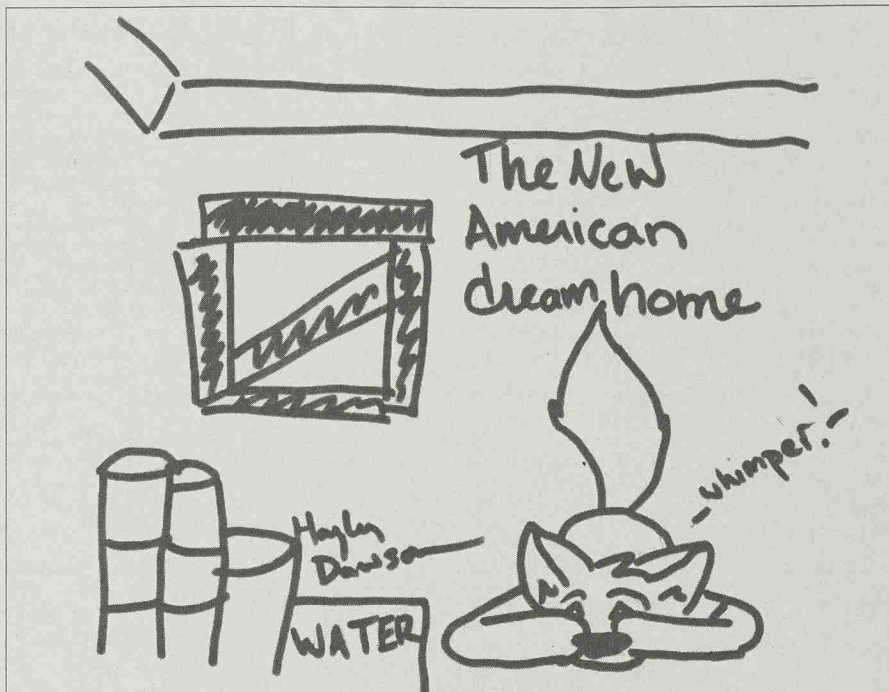 The New
American
dream home
whimper!
Hayley
Dawson
WATER